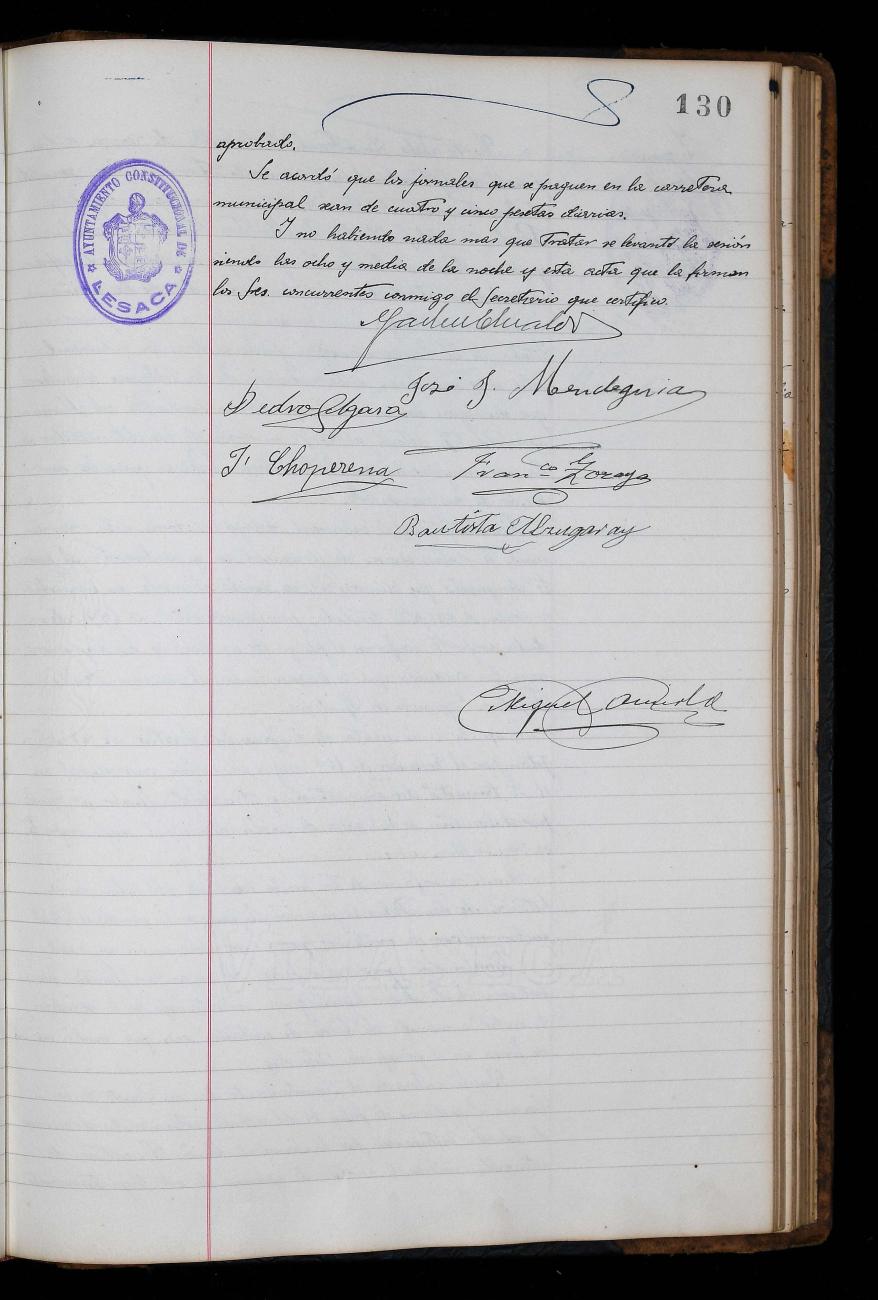 130
aprobado.
Se acordó que los jornales que se paguen en la carretera
municipal sean de cuatro y cinco pesetas diarias.
Y no habiendo nada mas que tratar se levantó la sesión
siendo las ocho y media de la noche y esta acta que la firman
los Sres. concurrentes conmigo el Secretario que certifico.
AYUNTAMIENTO CONSTITUCIONAL DE
LESACA
José J. Mendeguia
Pedro Elgara
J. Choperena
Fran.co Zozaya
Bautista Alzugaray
Miguel